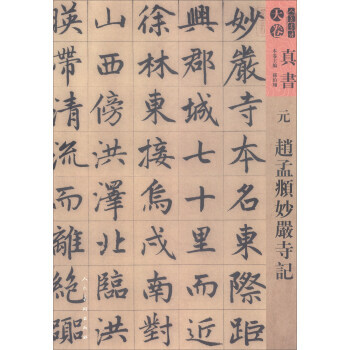 天卷
真書
元
趙孟頫妙嚴寺記
妙嚴寺本名東際距
興郡城七十里而近
徐林東接烏戍南對
山西傍洪澤北臨洪
暎帶清流而離絕